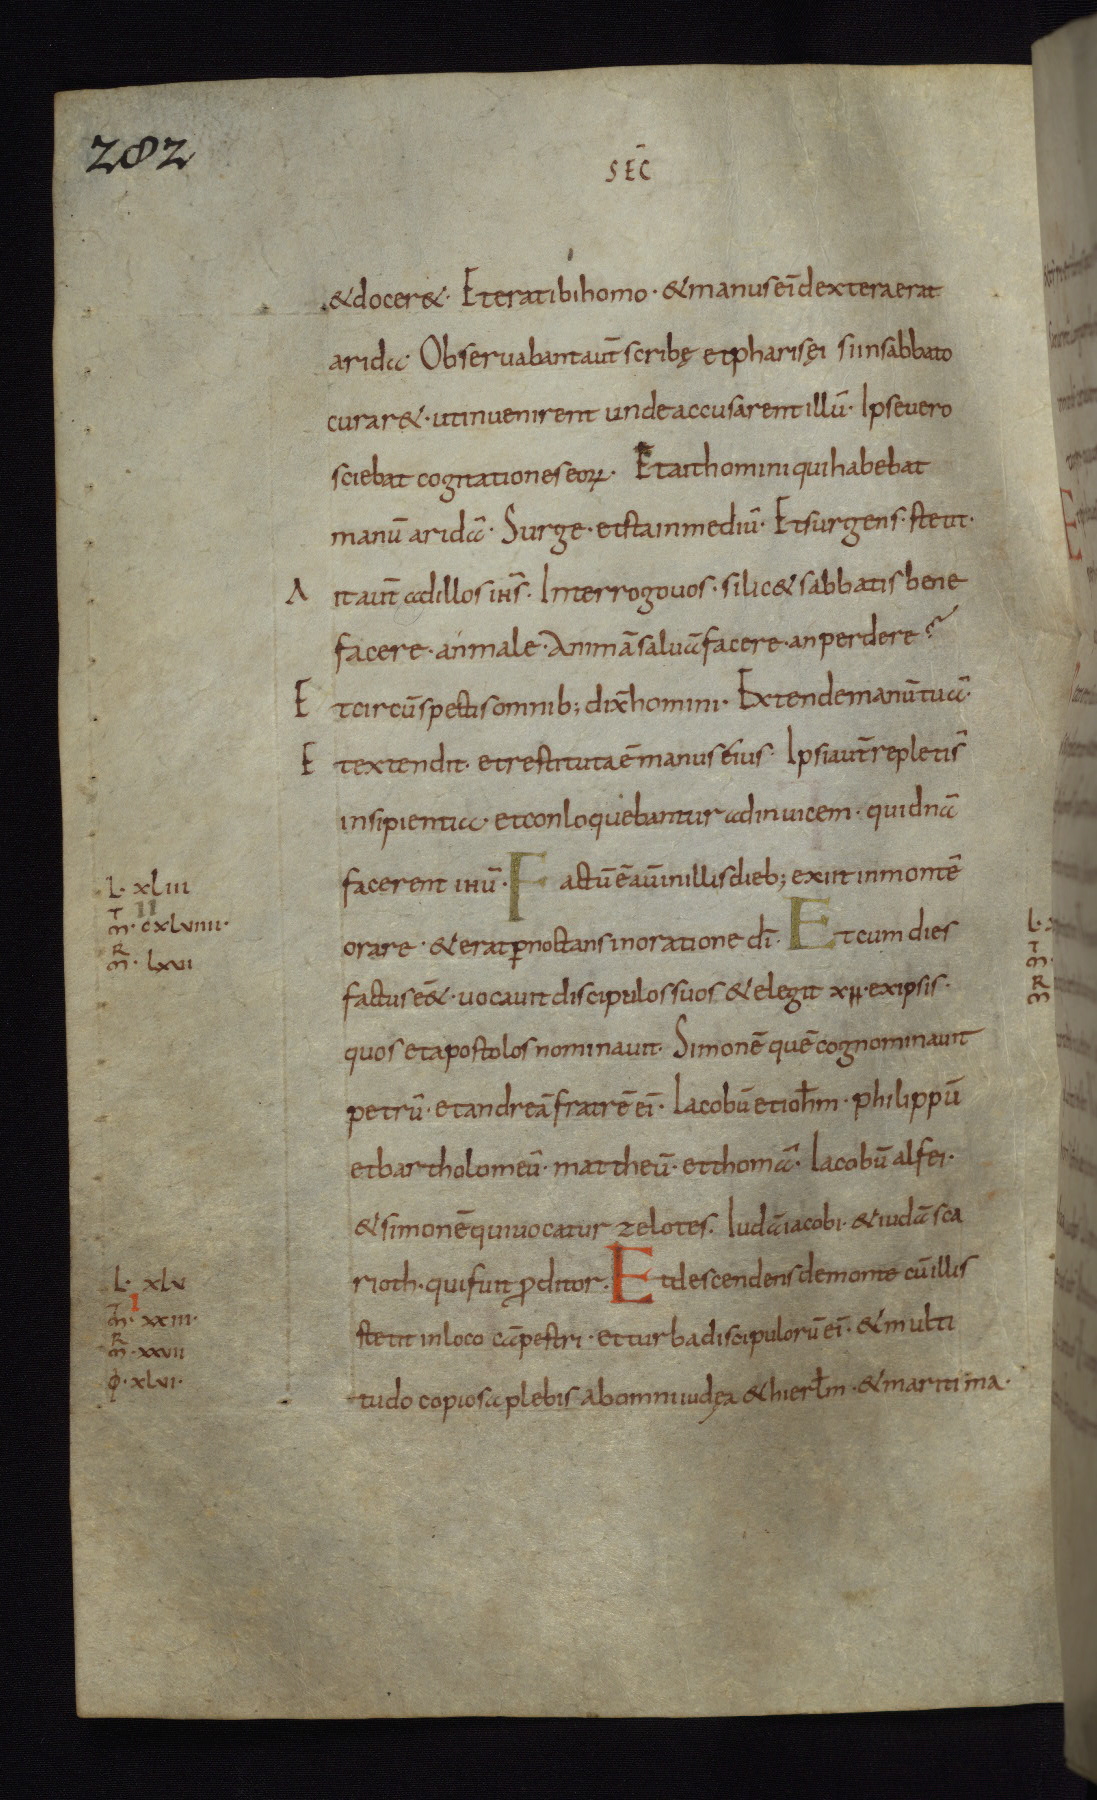 282
SEC̄
& docer&. Et erat ibi homo. & manus ei̅ dextera erat
arida. Observabant aut̅ scribę et pharisęi si in sabbato
curar&. ut invenirent unde accusarent illū. Ipse vero
sciebat cogitationes eoꝝ. Et ait homini qui habebat
manū aridā. Surge. et sta in mediū. Et surgens. stetit.
Ait aut̅ ad illos ih̅s. Interrogo vos. si lic& sabbatis bene
facere. an male. Animā salvā facere. an perdere?
Et circū spectis omnib; dix̅ homini. Extende manū tuā.
Et extendit. et restituta ē manus eius. Ipsi aut̅ repleti s̅
insipientia. et conloquebantur ad invicem. quidnā
facerent ihū. Factū ē au̅ in illis dieb; exiit in montē
orare. & erat ꝑnoctans in oratione di̅. Et cum dies
factus ēe&. vocavit discipulos suos & elegit xii. ex ipsis.
quos et apostolos nominavit. Simonē quē cognominavit
petrū. et andreā fratrē ei̅. Iacobū et ioh̅m. philippū
et bartholomeū. mattheū. et thomā. Iacobū alfei.
& simonē qui vocatur zelotes. Iudā iacobi. & iudā sca
rioth. qui fuit ꝓditor. Et descendens de monte cū illis
stetit in loco cāpestri. et turba discipulorū ei̅. & multi
tudo copiosa plebis ab omni iudęa & hierl̅m. & maritima.
L. xliii
II
m̅ᵀ. cxlviiii.
m̅ᴿ. lxvii
L. xlv
I
m̅ᵀ. xxiii.
m̅ᴿ. xxvii
φ. xlvi.